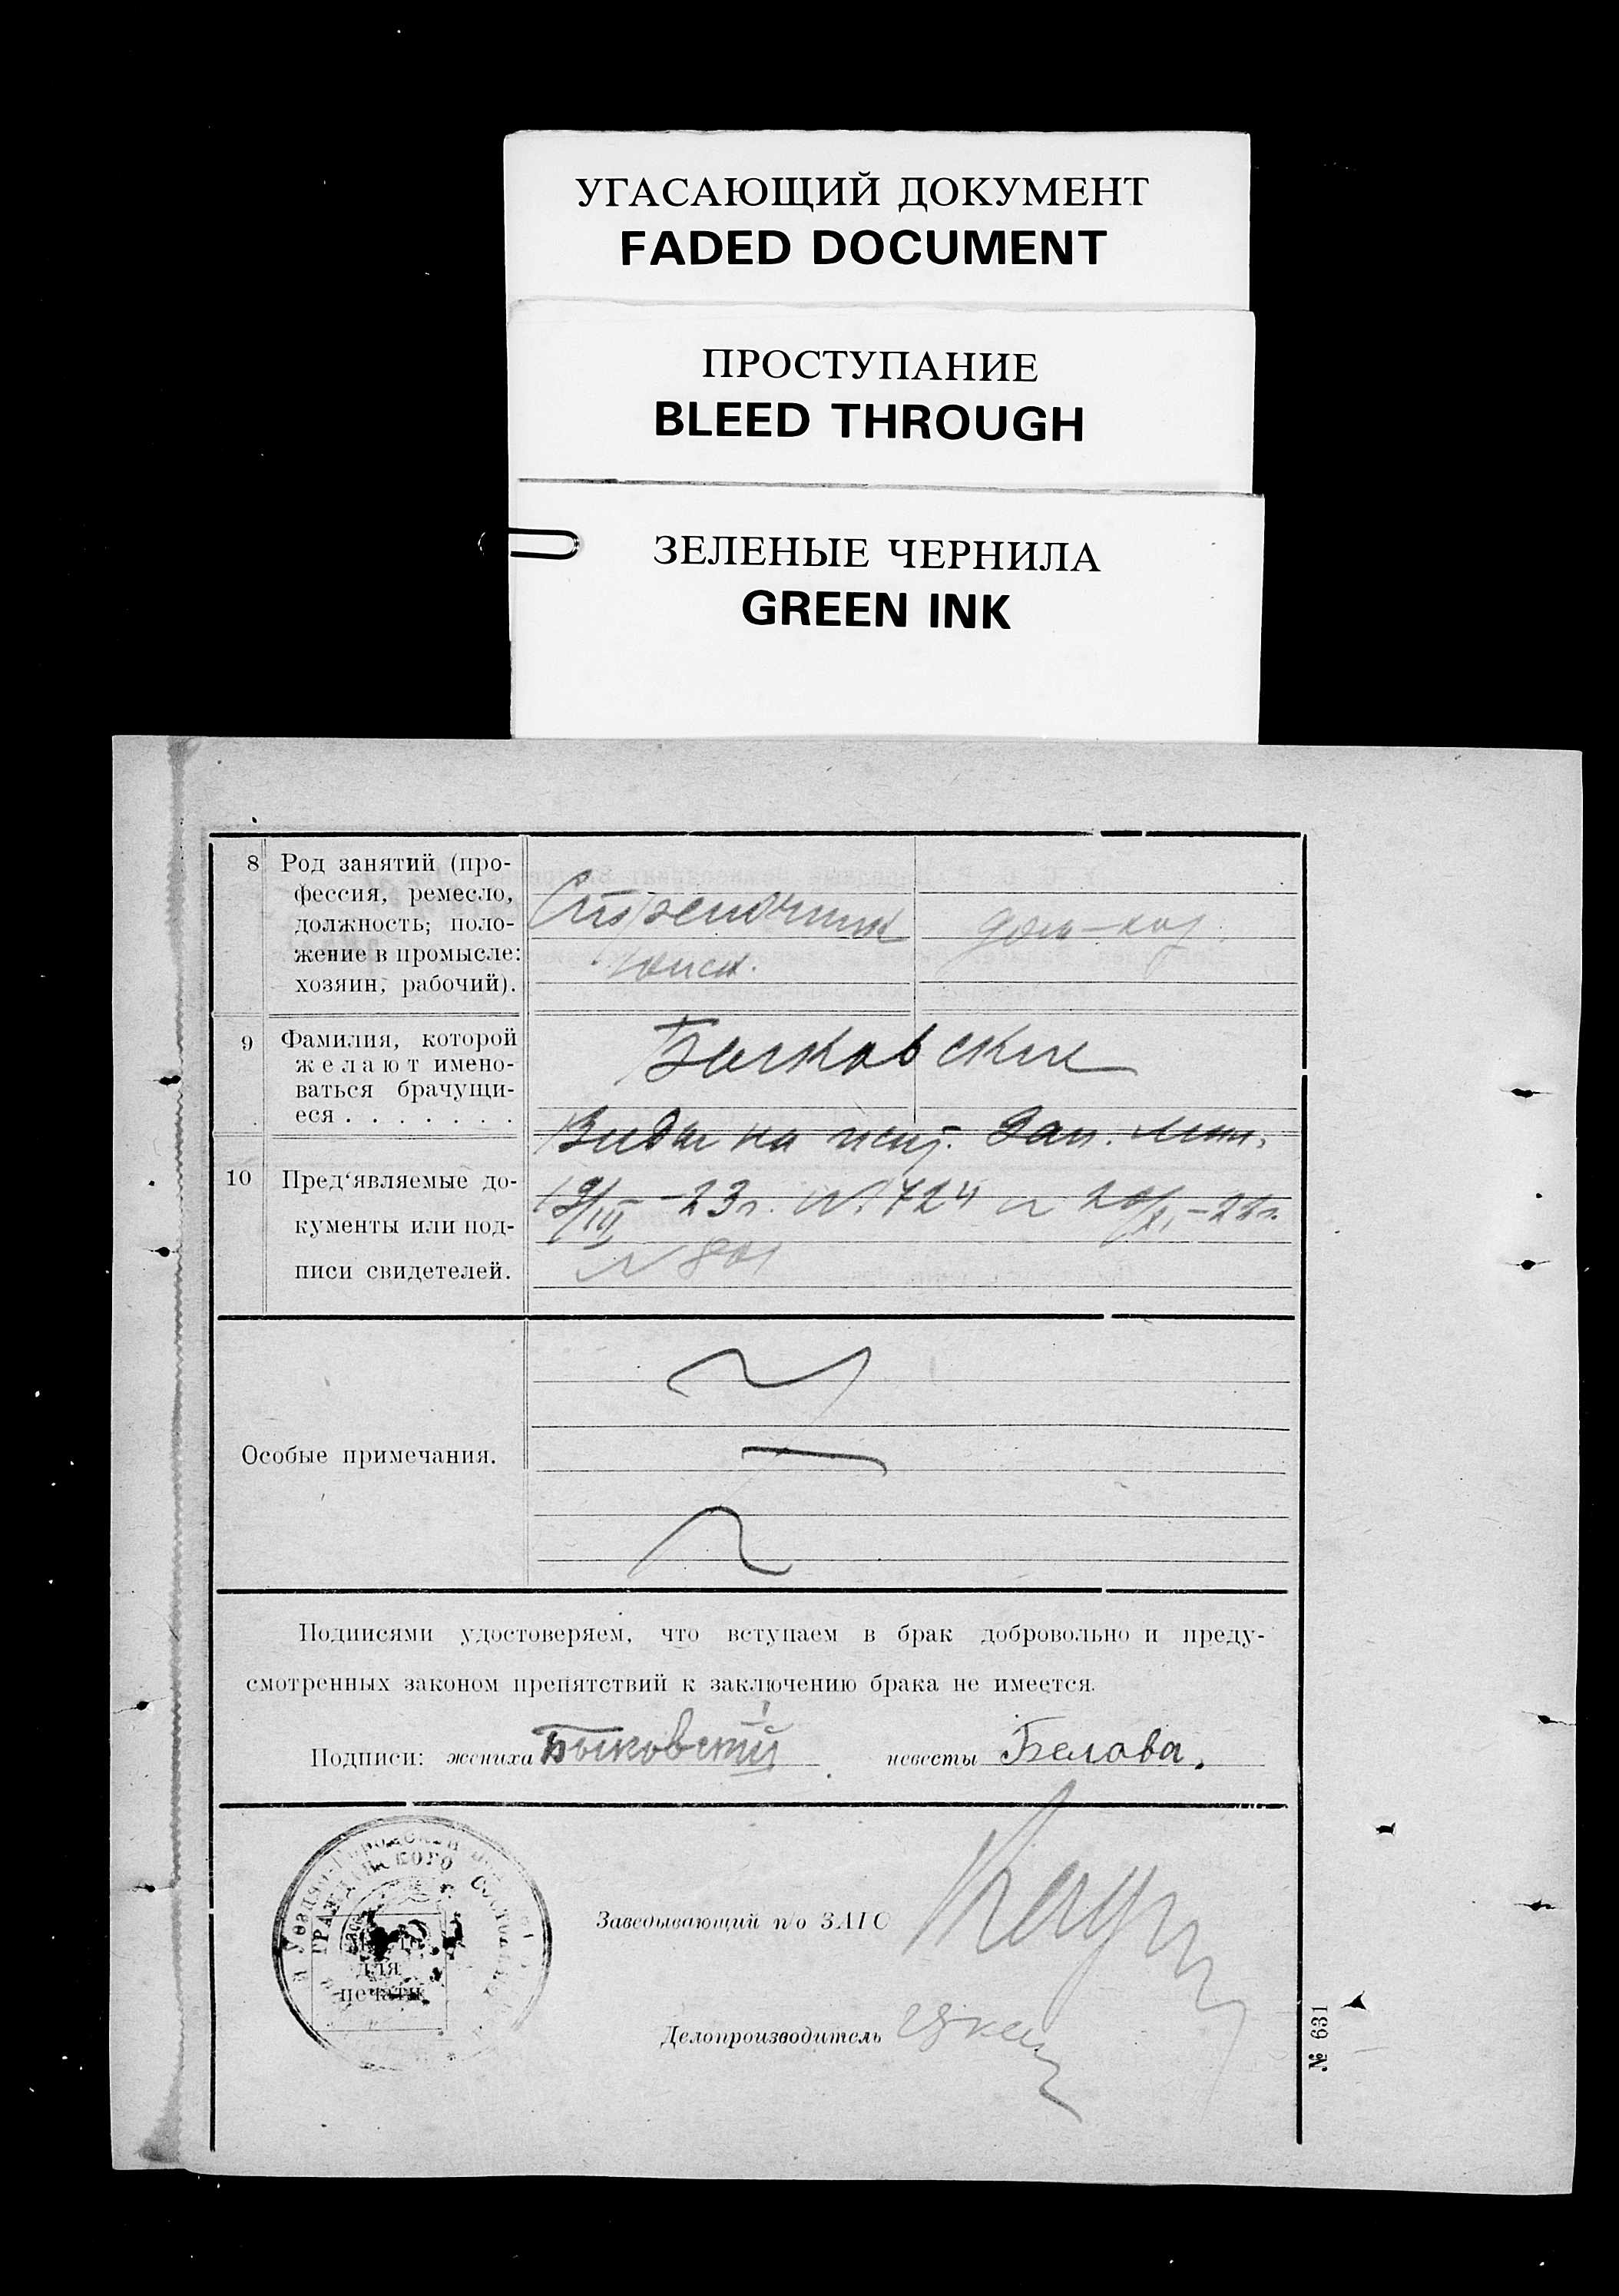 УГАСАЮЩИЙ ДОКУМЕНТ
FADED DOCUMENT
ПРОСТУПАНИЕ
BLEED THROUGH
ЗЕЛЕНЫЕ ЧЕРНИЛА
GREEN INK
8 Род занятий (про-
фессия, ремесло,
должность; поло-
жение в промысле:
хозяин, рабочий).
дом-хоз.
9 Фамилия, которой
желают имено-
ваться брачущи-
еся . . . . . . .
Быковские
10 Пред‘являемые до-
кументы или под-
писи свидетелей.
Виды на
-23г. № 724
№ 801
Особые примечания.
Подписями удостоверяем, что вступаем в брак добровольно и преду-
смотренных законом препятствий к заключению брака не имеется.
Подписи: жениха Быковский невесты Белова.
для
печати
Заведывающий п/о ЗАГС
Делопроизводитель
№ 631